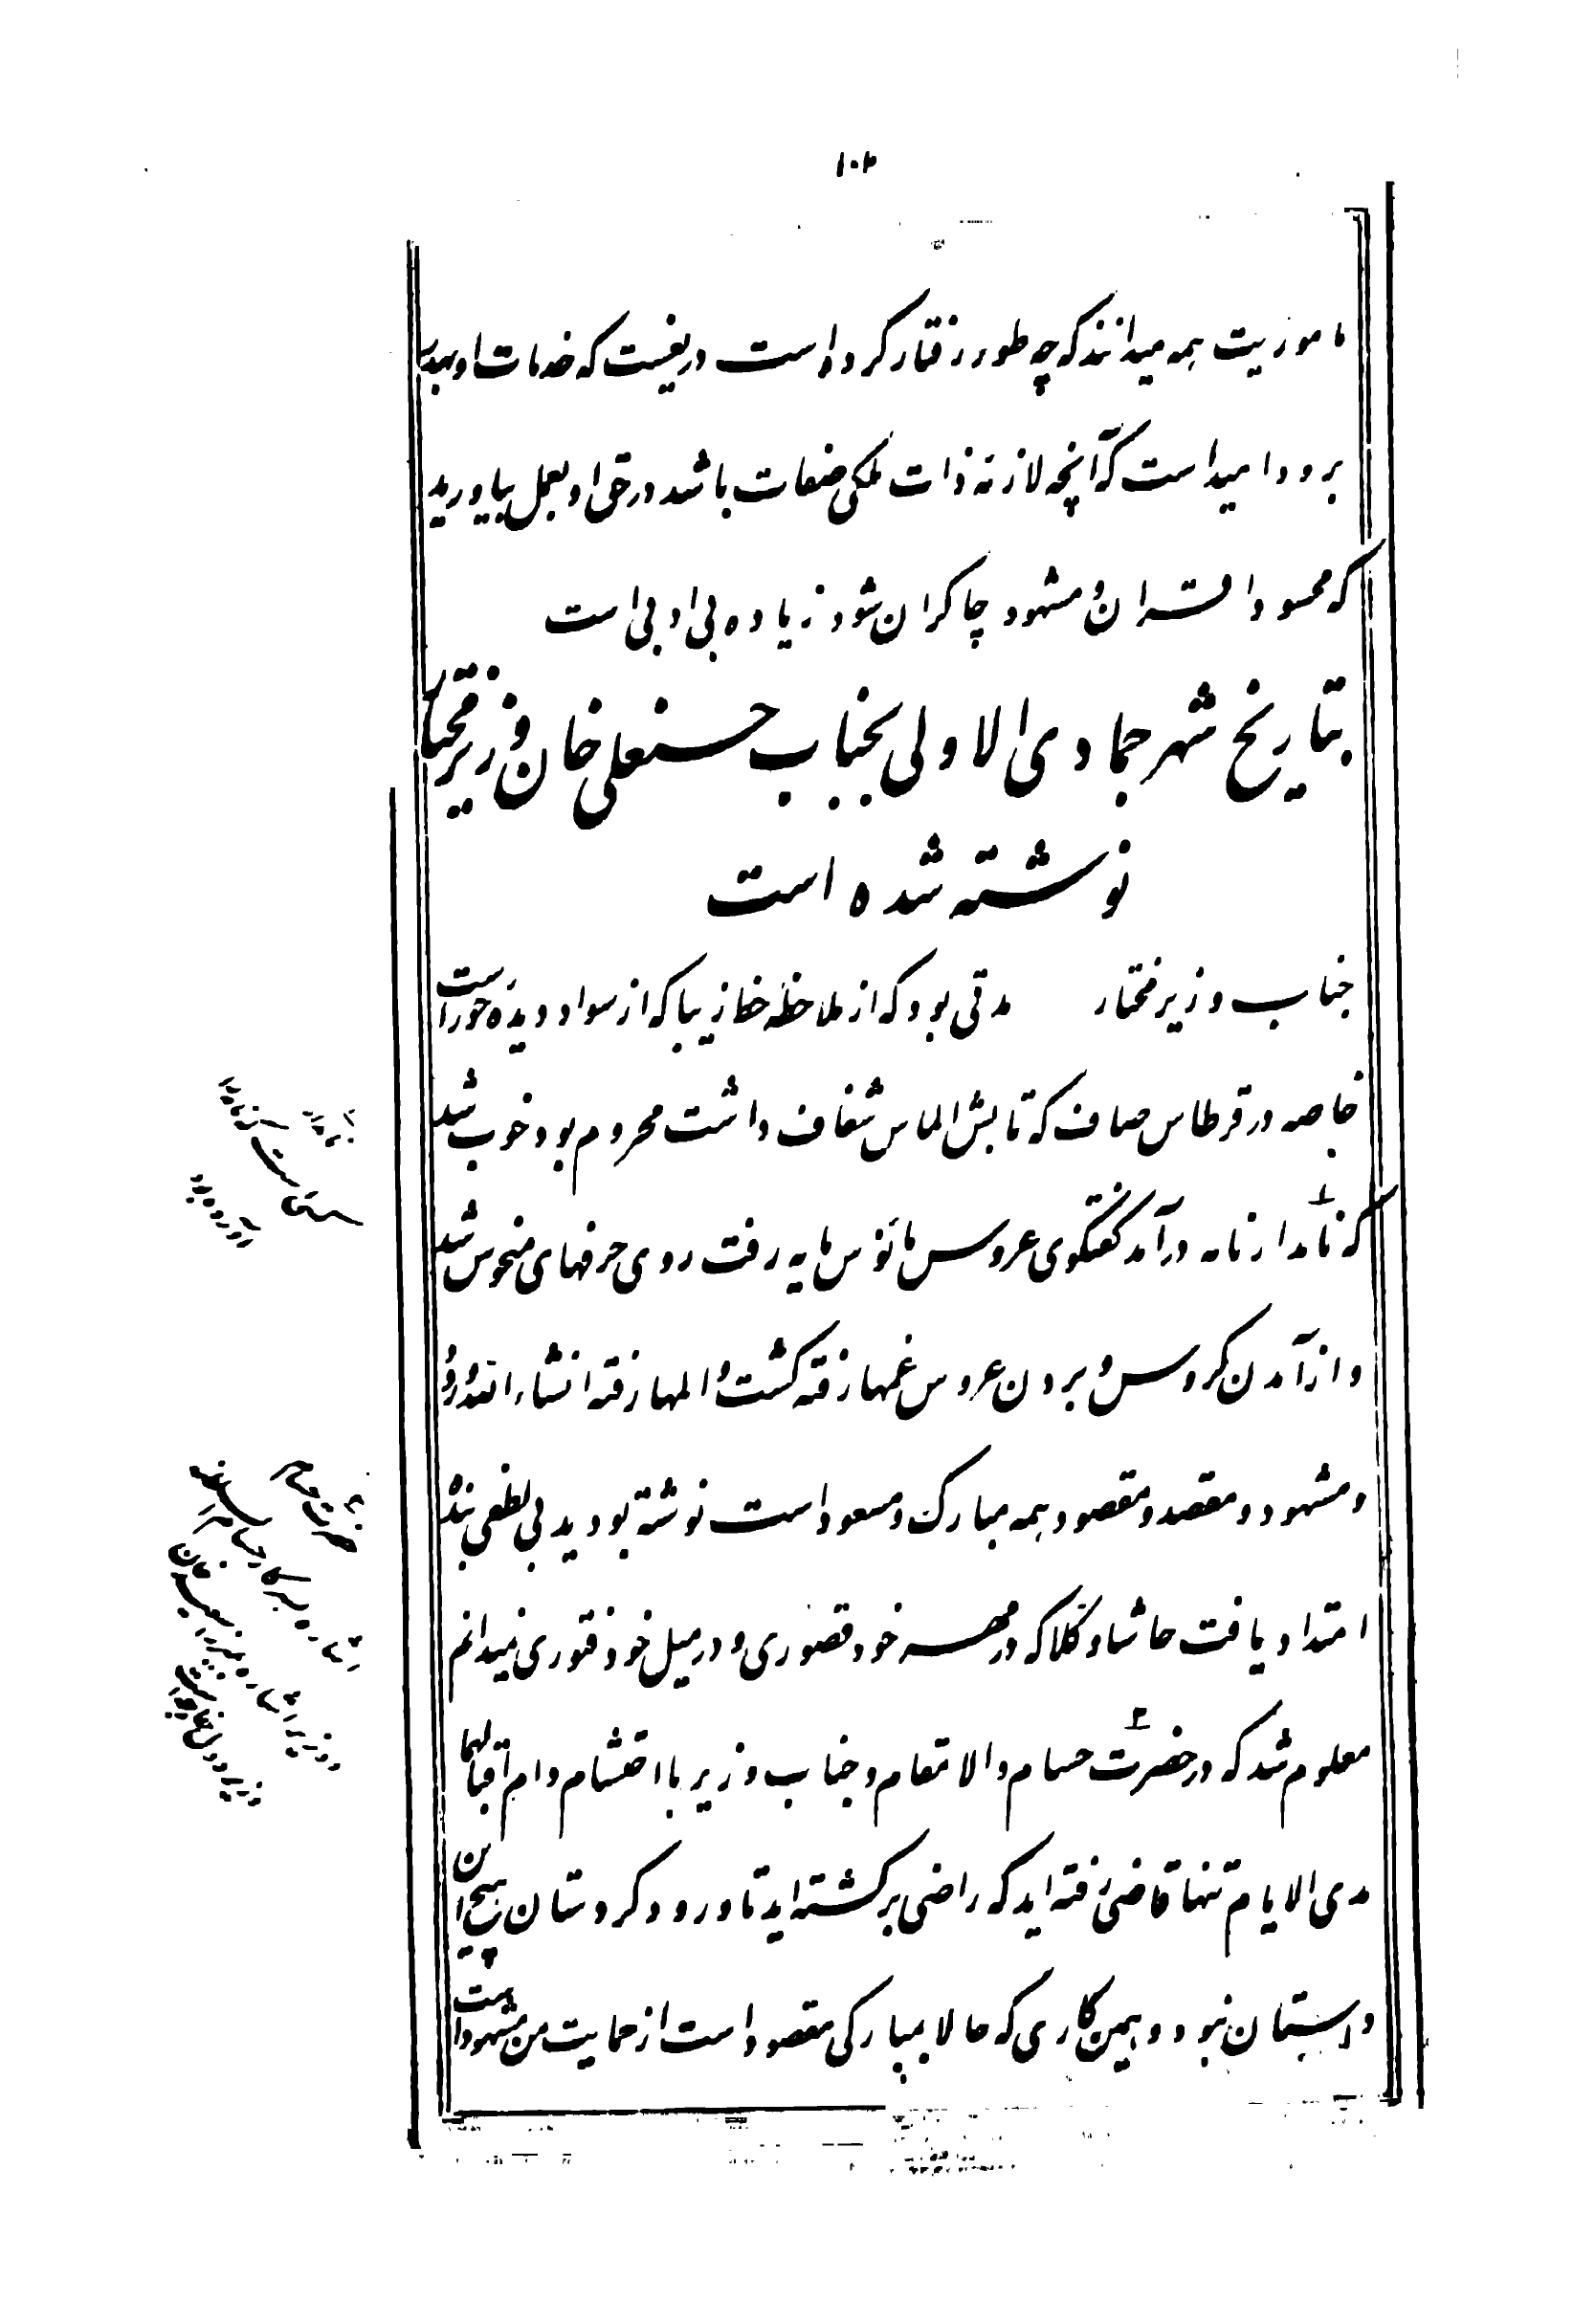 ۱۰۲
ماموریت همه میدانند که چه طور رفتار کرده است دریغست که خدمات او بهدر
برود امید است که آنچه لازمه ذات ملکی صفات باشد در حق او بعمل بیاورید
که محسود اقران و مشهود چاکران شود زیاده بی ادبی است
بتاریخ شهر جمادی الاولی بجناب حسنعلی خان وزیر مختار
نوشته شده است
جناب وزیر مختار مدتی بود که از ملاحظه خط زیبا که از سواد دیده حور است
خاصه در قرطاس صاف که تابش الماس شفاف داشت محروم بود خوب شد
که نامدار نامه درآمد گفتگوی عروس مانوس مایه رفت روی حرفهای منحوس شد
و از آمدن گروس و بردن عروس غمها رفته گشت و المها رفته انشاء الله ورود
و مشهود و مقصد و مقصود همه مبارک و مسعود است نوشته بودید بی لطفی بنده
امتداد یافت حاشا و کلا که در مهر خود قصوری و در میل خود فتوری نمیدانم
معلوم شد که در حضرت حسام والا مقام و جناب وزیر با احتشام دام اقبالهما
مدی الایام تنها قاضی رفته اید که راضی برگشته اید تا ورود کردستان هیچ این
داستان نبود و همین کاری که حالا بمبارکی مقصود است از حمایت من مشهود است